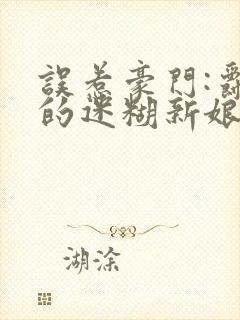 誤惹豪門:爵
的迷糊新娘
湖涂